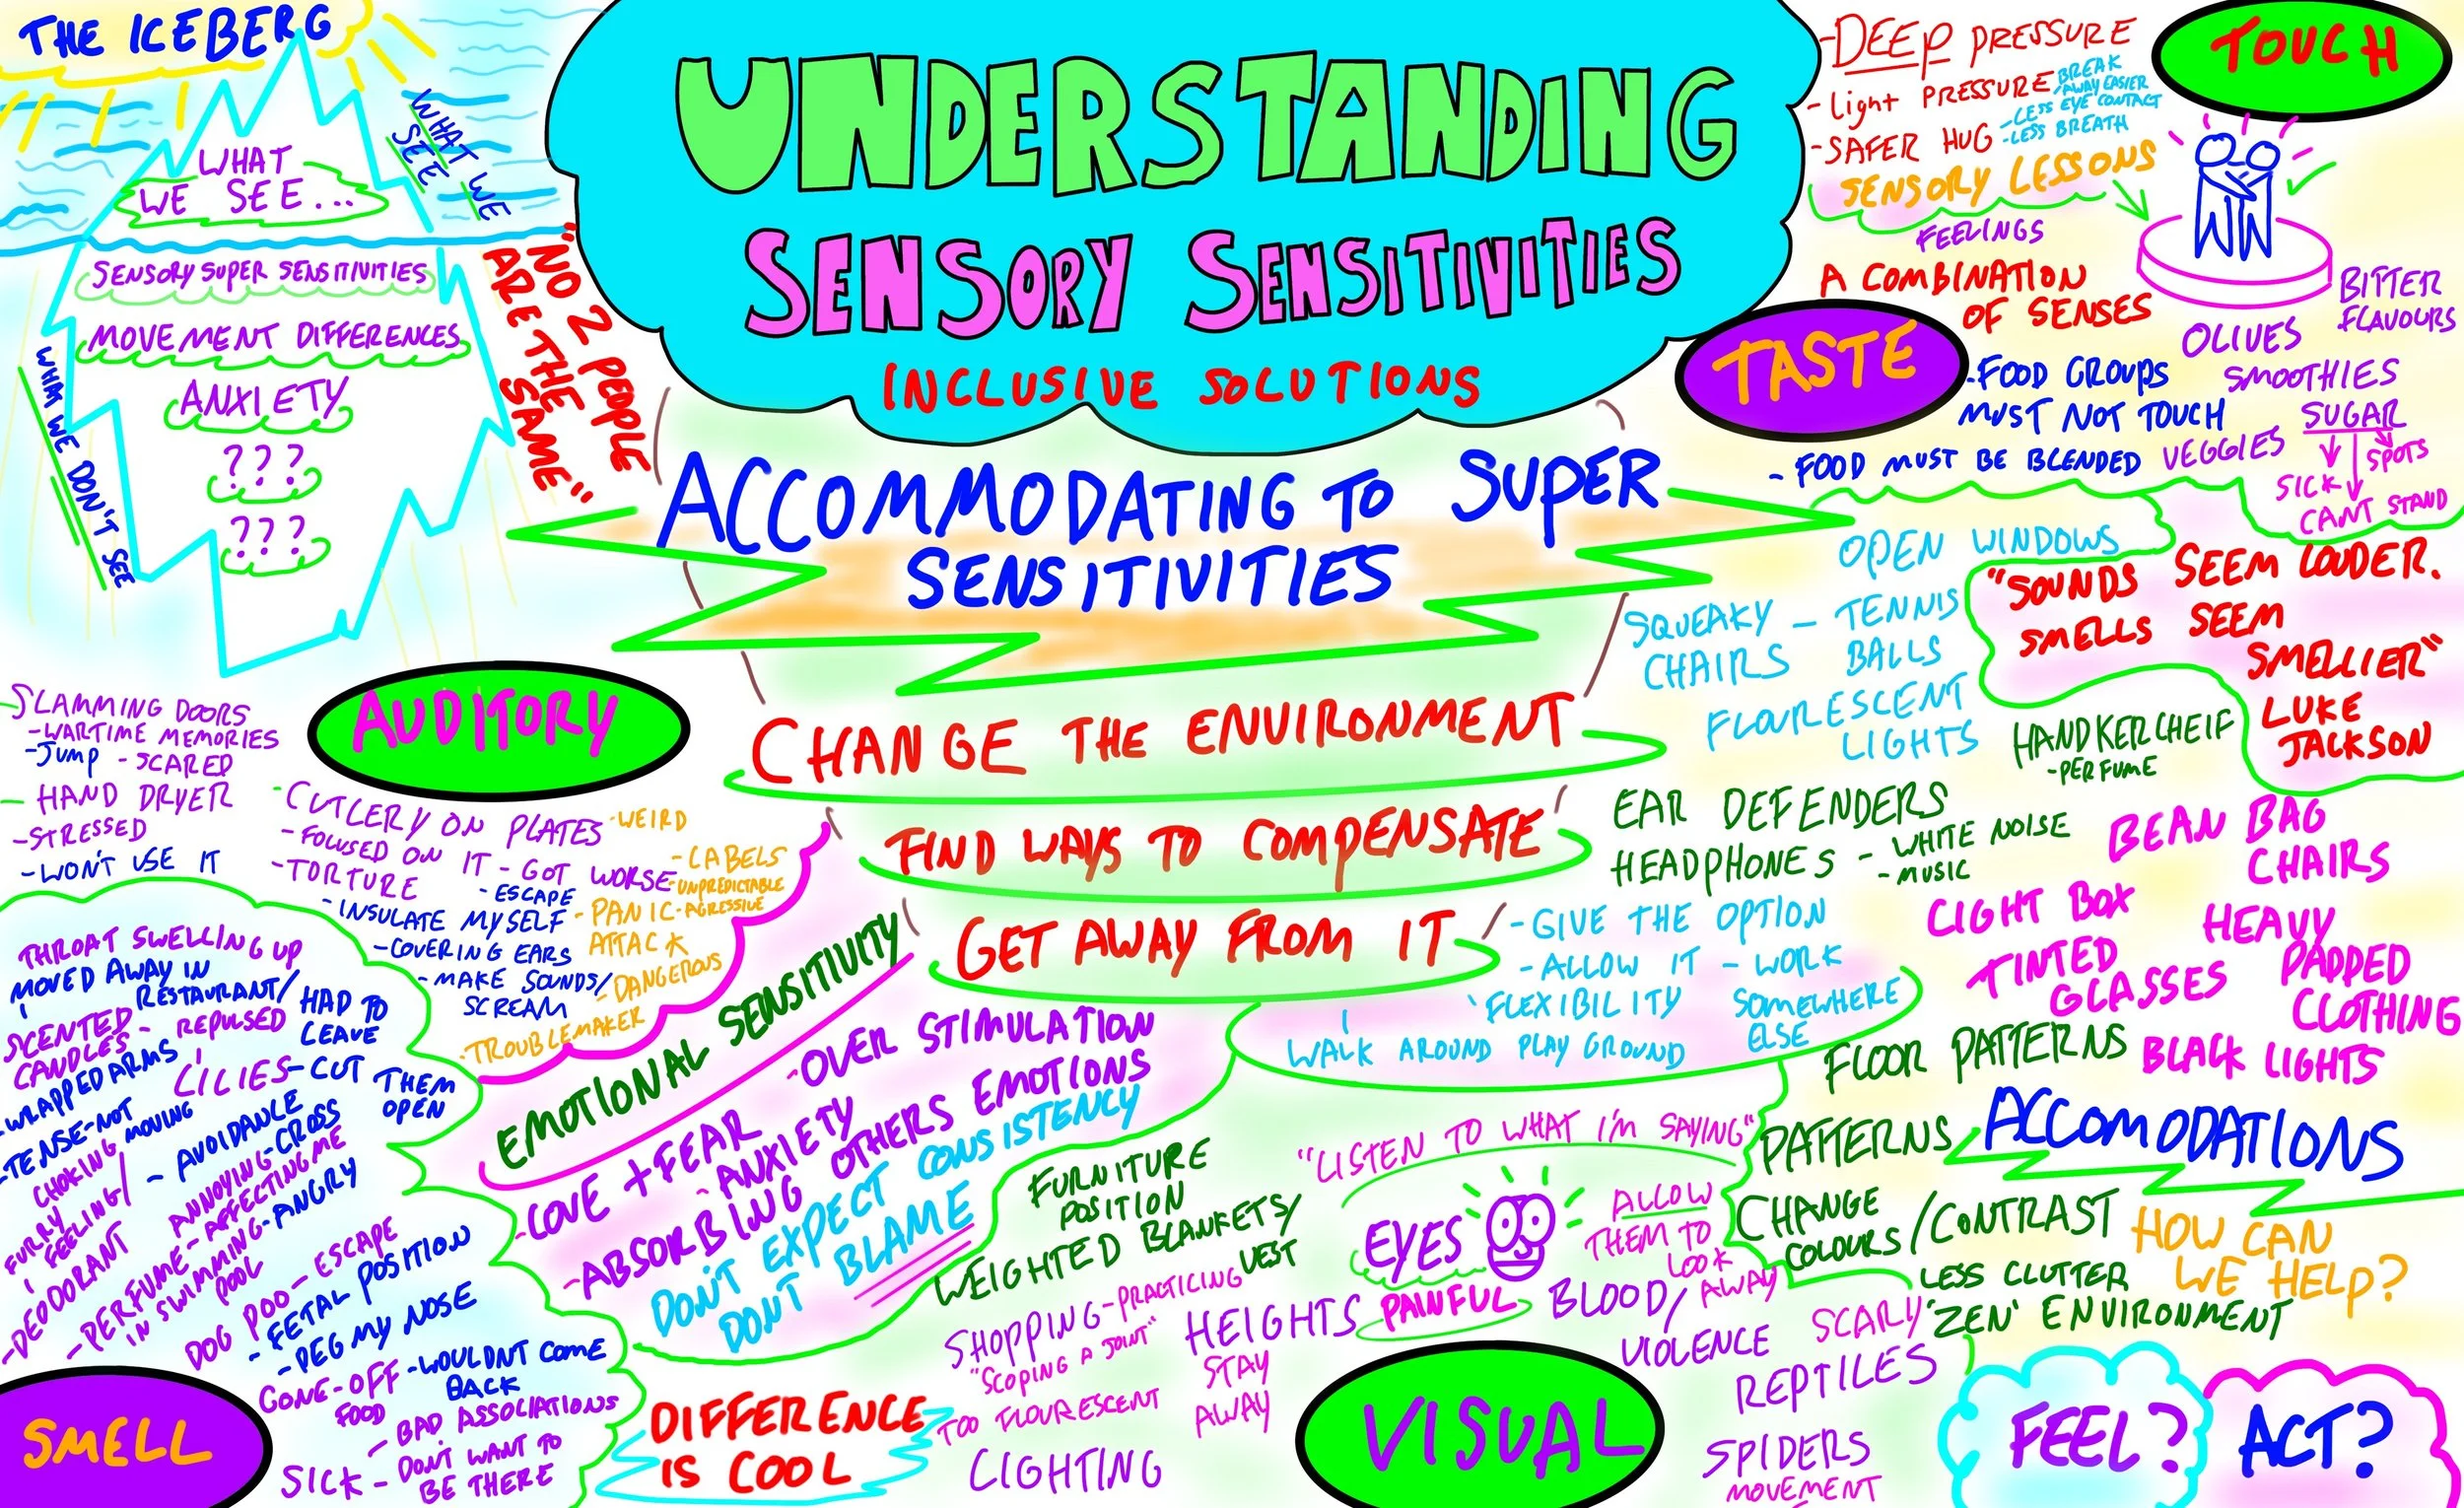 THE ICEBERG
WHAT
WE SEE...
WHAT WE
SEE
SENSORY SUPER SENSITIVITIES
MOVEMENT DIFFERENCES
ANXIETY
???
???
WHAT WE DON'T SEE
"NO 2 PEOPLE
ARE THE
SAME"
UNDERSTANDING
SENSORY SENSITIVITIES
INCLUSIVE SOLUTIONS
ACCOMMODATING TO SUPER
SENSITIVITIES
CHANGE THE ENVIRONMENT
FIND WAYS TO COMPENSATE
GET AWAY FROM IT
TOUCH
-DEEP PRESSURE
-Light PRESSURE
-SAFER HUG
BREAK
AWAY EASIER
-LESS EYE CONTACT
-LESS BREATH
SENSORY LESSONS
FEELINGS
A COMBINATION
OF SENSES
TASTE
BITTER
FLAVOURS
OLIVES
-FOOD GROUPS
MUST NOT TOUCH
SMOOTHIES
SUGAR
SPOTS
SICK
CANT STAND
-FOOD MUST BE BLENDED
VEGGIES
OPEN WINDOWS
SQUEAKY - TENNIS
CHAIRS BALLS
FLOURESCENT
LIGHTS
"SOUNDS SEEM LOUDER.
SMELLS SEEM
SMELLIER"
LUKE
JACKSON
HANDKERCHEIF
-PERFUME
EAR DEFENDERS
HEADPHONES - WHITE NOISE
- MUSIC
BEAN BAG
CHAIRS
LIGHT BOX
HEAVY
PADDED
CLOTHING
TINTED
GLASSES
BLACK LIGHTS
- GIVE THE OPTION
- ALLOW IT - WORK
SOMEWHERE
ELSE
FLEXIBILITY
WALK AROUND PLAY GROUND
FLOOR PATTERNS
PATTERNS
ACCOMODATIONS
CHANGE
COLOURS/CONTRAST
LESS CLUTTER
'ZEN' ENVIRONMENT
HOW CAN
WE HELP?
FEEL?
ACT?
AUDITORY
SLAMMING DOORS
-WARTIME MEMORIES
-JUMP -SCARED
- HAND DRYER
-STRESSED
-WON'T USE IT
-CUTLERY ON PLATES
- FOCUSED ON IT - GOT WORSE
-TORTURE
-ESCAPE
-INSULATE MYSELF
-COVERING EARS
-MAKE SOUNDS/
SCREAM
-WEIRD
-LABELS
-UNPREDICTABLE
-PANIC
ATTACK
-AGRESSIVE
-DANGEROUS
-TROUBLEMAKER
EMOTIONAL SENSITIVITY
-OVER STIMULATION
-LOVE + FEAR
-ANXIETY
-ABSORBING OTHERS EMOTIONS
DON'T EXPECT CONSISTENCY
DONT BLAME
THROAT SWELLING UP
MOVED AWAY IN
RESTAURANT/
HAD TO
LEAVE
SCENTED
CANDLES-
- REPULSED
-WRAPPED ARMS
LILIES-CUT THEM
OPEN
-TENSE-NOT
MOVING
CHOKING
- AVOIDANCE
FURRY
FEELING/
ANNOYING-CROSS
-DEODORANT
-PERFUME - AFFECTING ME
IN SWIMMING-ANGRY
POOL
DOG POO-ESCAPE
-FETAL POSITION
-PEG MY NOSE
GONE-OFF
FOOD
-WOULDNT COME
BACK
- BAD ASSOCIATIONS
SICK - DON'T WANT TO
BE THERE
SMELL
DIFFERENCE
IS COOL
FURNITURE
POSITION
WEIGHTED BLANKETS/
VEST
SHOPPING-PRACTICING
"SCOPING A JOINT"
TOO FLOURESCENT
LIGHTING
HEIGHTS
STAY
AWAY
"LISTEN TO WHAT I'M SAYING"
EYES
PAINFUL
ALLOW
THEM TO
LOOK
AWAY
BLOOD/
VIOLENCE
SCARY
REPTILES
SPIDERS
MOVEMENT
VISUAL